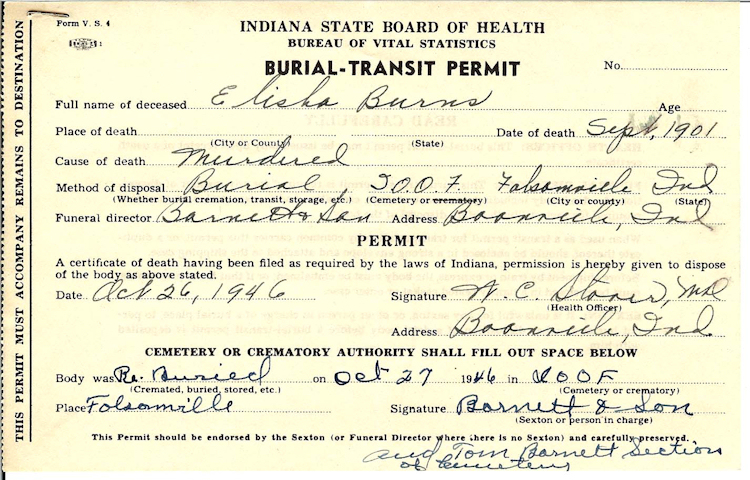 THIS PERMIT MUST ACCOMPANY REMAINS TO DESTINATION
Form V. S. 4
INDIANA STATE BOARD OF HEALTH
BUREAU OF VITAL STATISTICS
BURIAL-TRANSIT PERMIT
No.
Full name of deceased Elisha Burns Age
Place of death Date of death Sept, 1901
(City or County) (State)
Cause of death Murdered
Method of disposal Burial, IOOF Folsomville Ind
(Whether burial cremation, transit, storage, etc.) (Cemetery or crematory) (City or county) (State)
Funeral director Barnett & Son Address Boonville, Ind
PERMIT
A certificate of death having been filed as required by the laws of Indiana, permission is hereby given to dispose
of the body as above stated.
Date Oct 26, 1946 Signature W. C. Stover, MD
(Health Officer)
Address Boonville, Ind
CEMETERY OR CREMATORY AUTHORITY SHALL FILL OUT SPACE BELOW
Body was Re. Buried on Oct 27 1946 in IOOF
(Cremated, buried, stored, etc.) (Cemetery or crematory)
Place Folsomville Signature Barnett & Son
(Sexton or person in charge)
This Permit should be endorsed by the Sexton (or Funeral Director where there is no Sexton) and carefully preserved.
and Tom Barnett Section
of Cemetery